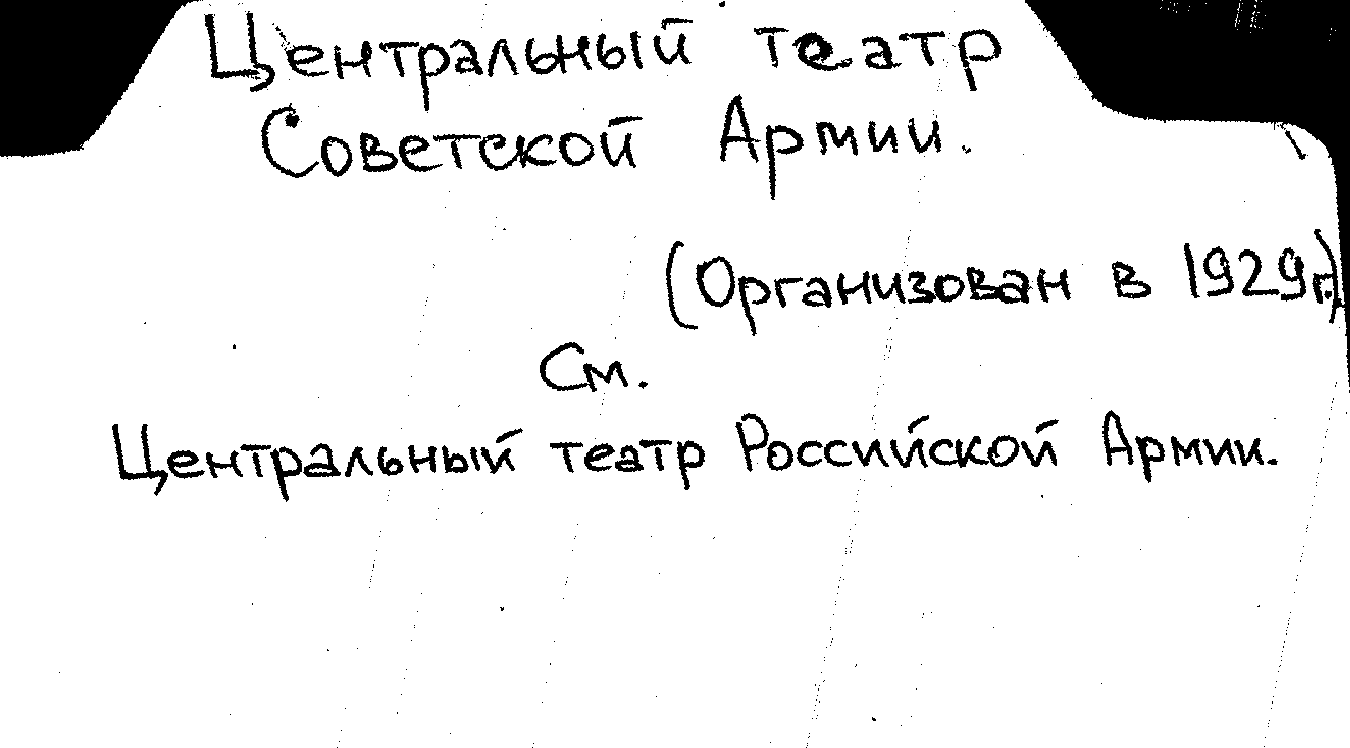 Центральный театр
Советской Армии.
(Организован в 1929г.)
См.
Центральный театр Российской Армии.